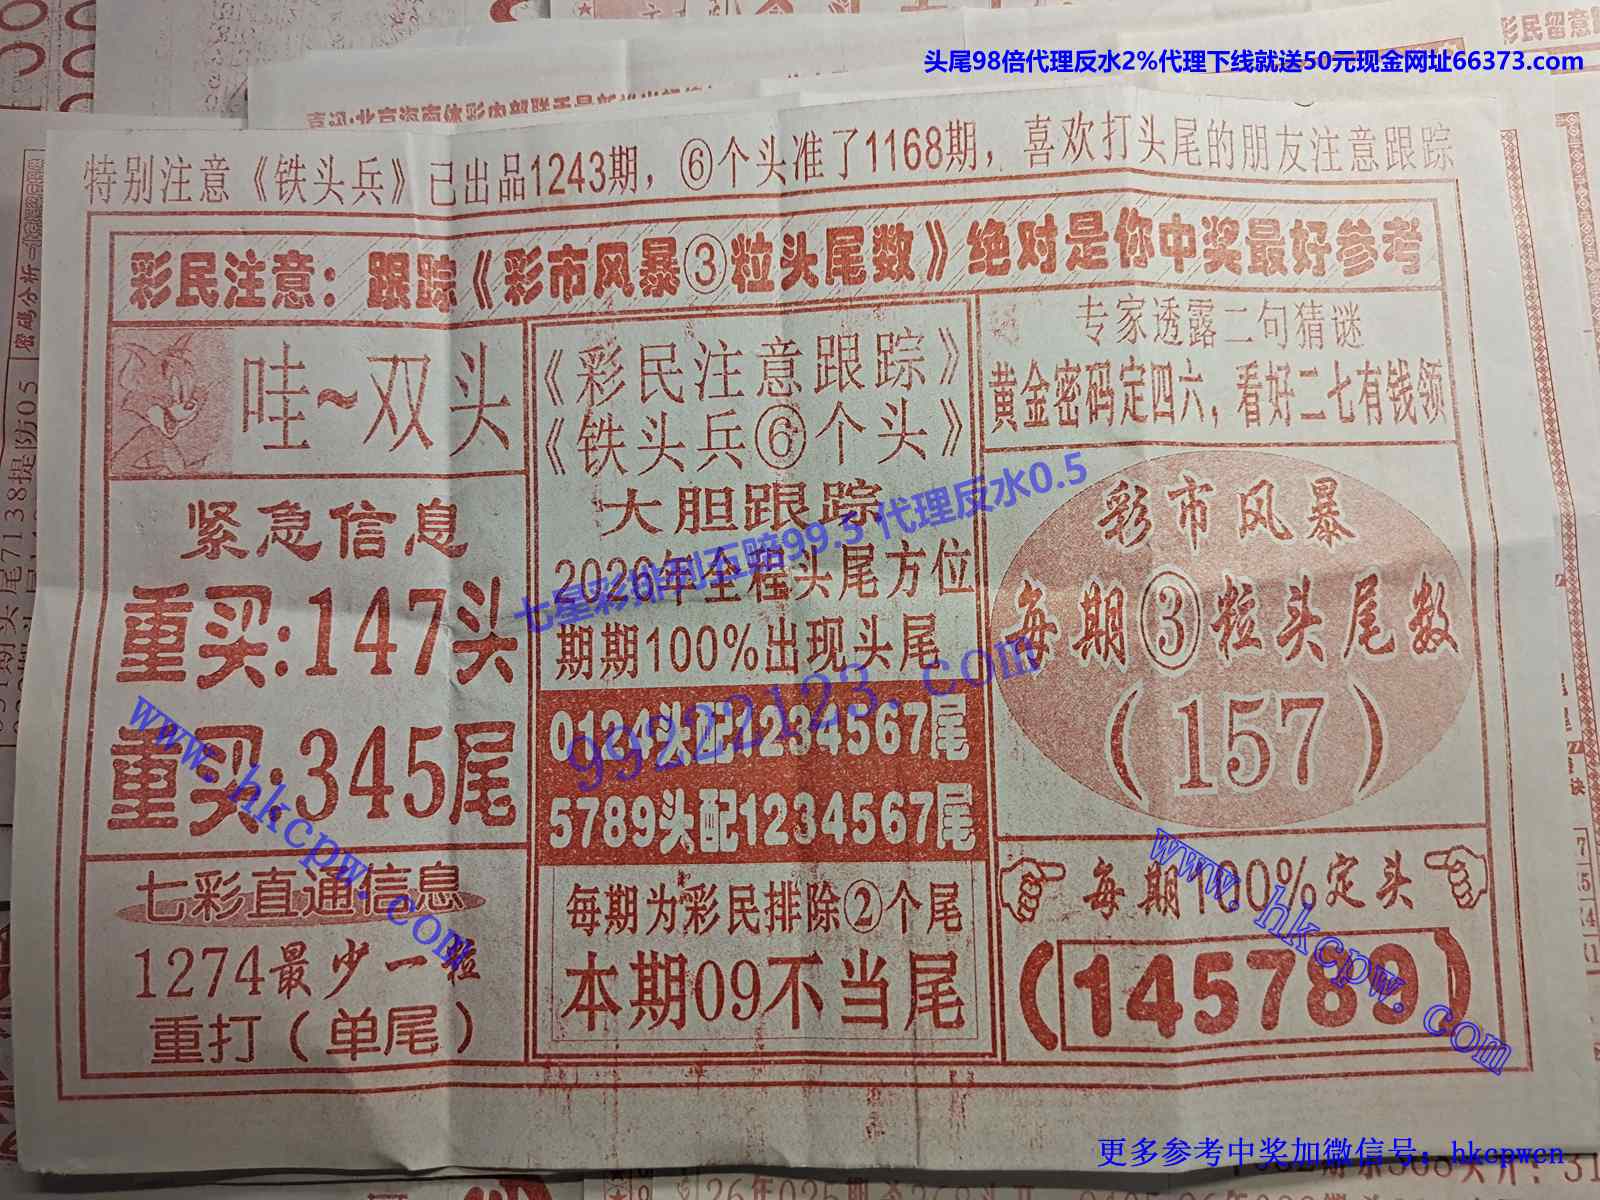 头尾98倍代理反水2%代理下线就送50元现金网址66373.com
彩民留意
特别注意《铁头兵》已出品1243期，⑥个头准了1168期，喜欢打头尾的朋友注意跟踪
彩民注意：跟踪《彩市风暴③粒头尾数》绝对是你中奖最好参考
哇~双头
紧急信息
重买:147头
重买:345尾
七彩直通信息
1274最少一粒
重打（单尾）
《彩民注意跟踪》
《铁头兵⑥个头》
大胆跟踪
2026年全程头尾方位
期期100%出现头尾
0124头配1234567尾
5789头配1234567尾
每期为彩民排除②个尾
本期09不当尾
专家透露二句猜谜
黄金密码定四六，看好二七有钱领
彩市风暴
每期③粒头尾数
（157）
每期100%定头
（145789）
七星彩排列五赔99.5 代理反水0.5
99222123.com
www.hkcpw.com
www.hkcpw.com
更多参考中奖加微信号：hkcpwcn